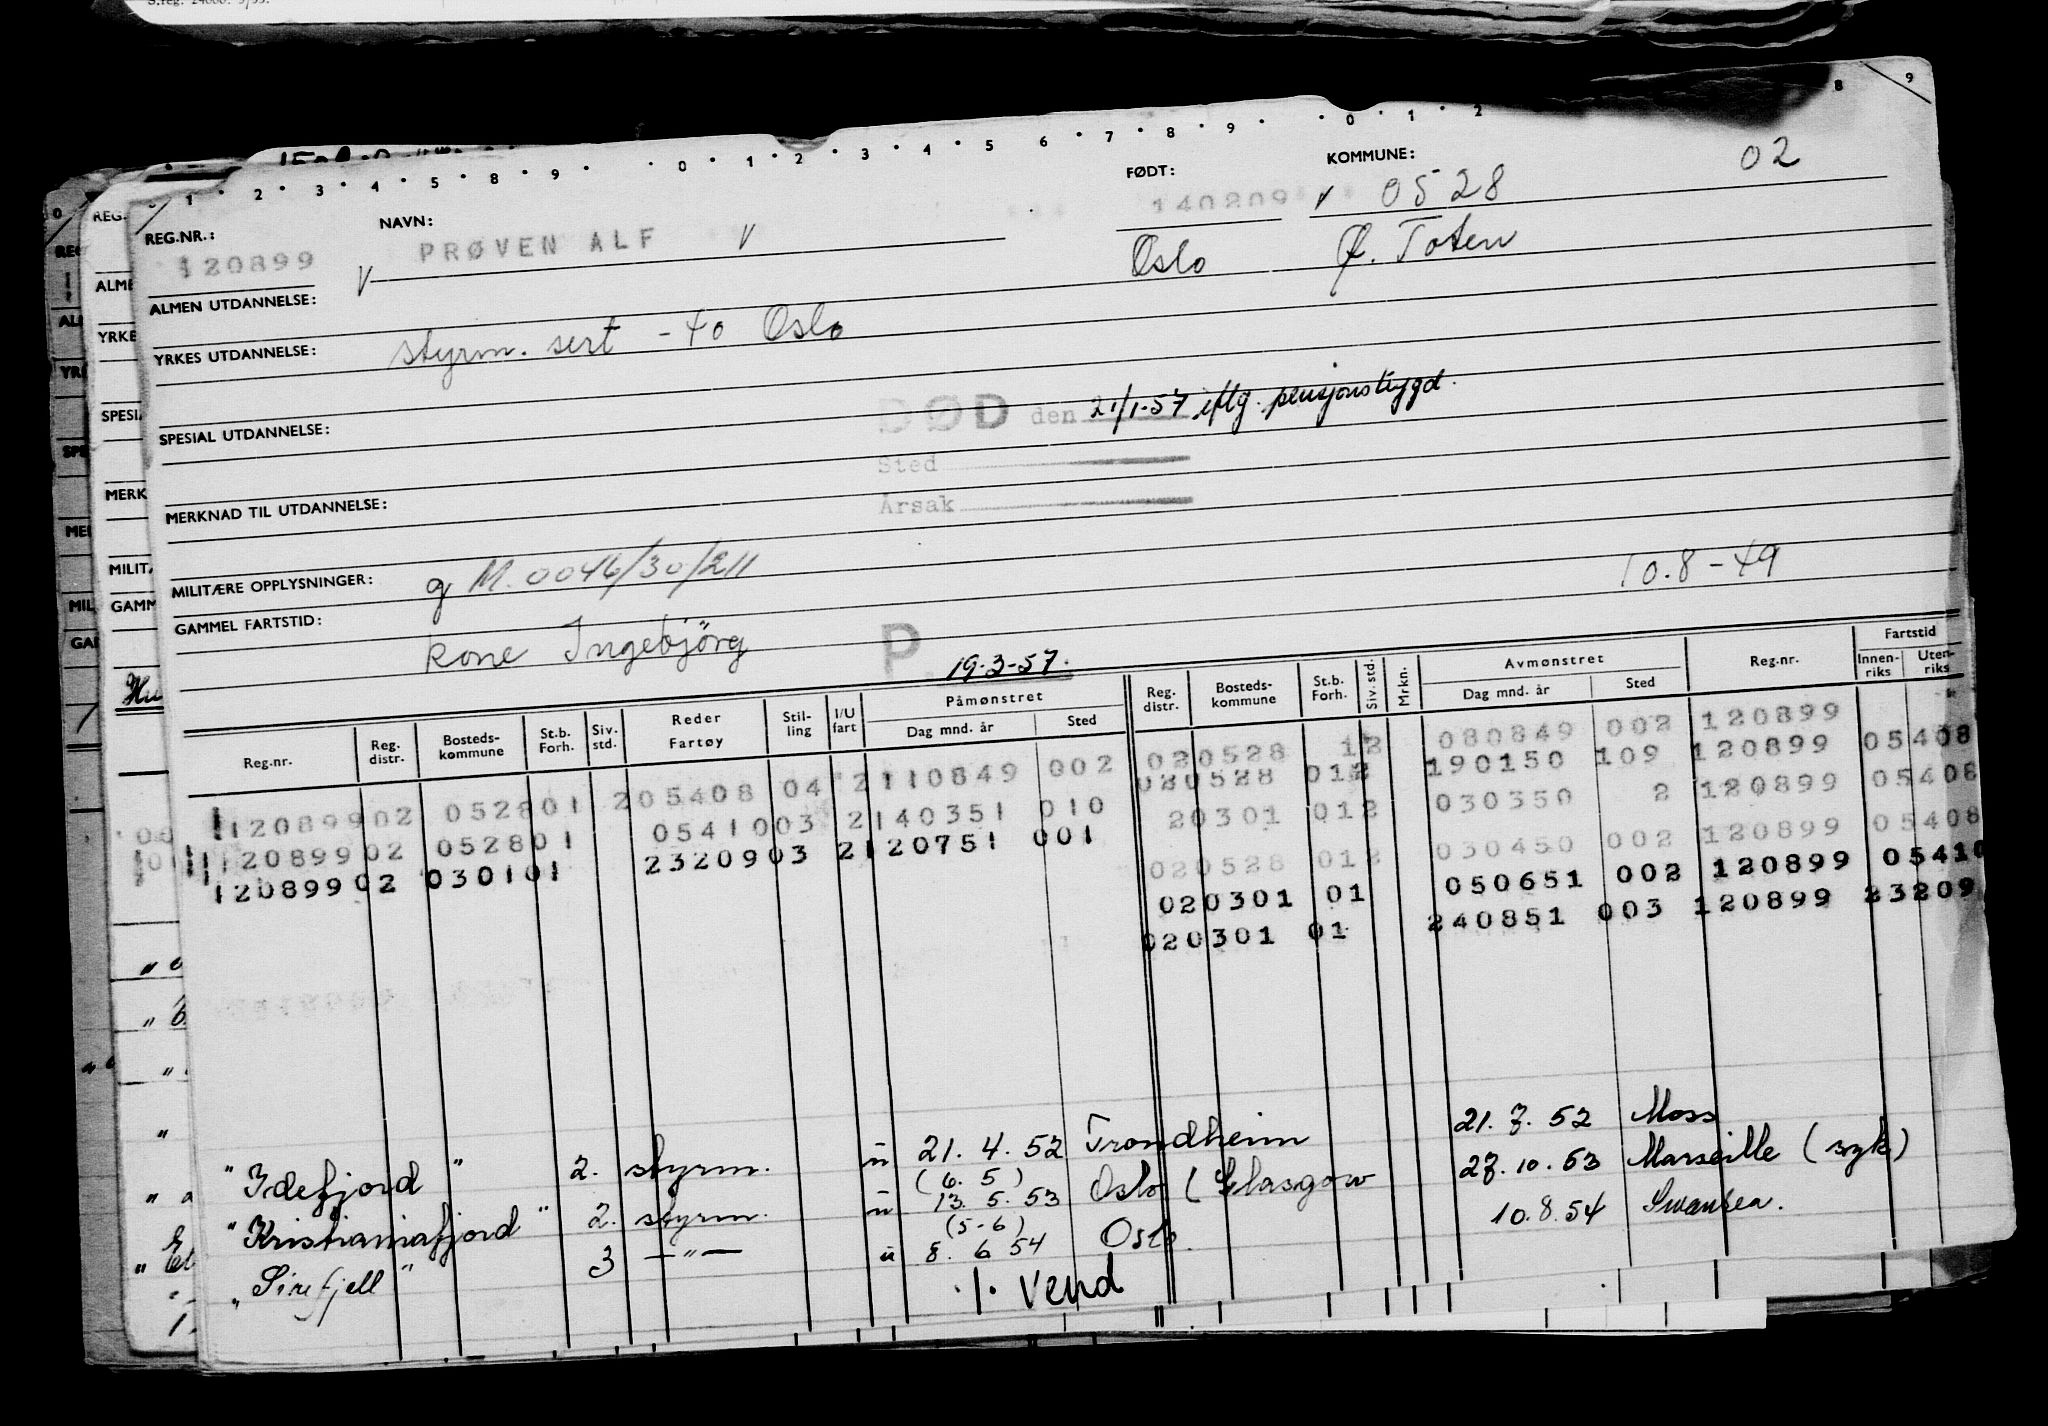 1 · 2 · 3 · 4 · 5 · 8 · 9 · 0 · 1 · 2 · 3 · 4 · 5 6 · 7 · 8 · 9 · · 0 · 1 · 2 8 9
REG.NR.: NAVN: FØDT: KOMMUNE: 02
120899 PRØVEN ALF 140209 0528
Oslo Ø. Toten
ALMEN UTDANNELSE:
YRKES UTDANNELSE: styrm. sert -40 Oslo
DØD den 21/1-57 iflg. pensjonstrygd.
SPESIAL UTDANNELSE:
Sted
Årsak
MERKNAD TIL UTDANNELSE:
MILITÆRE OPPLYSNINGER: g M.0046/30/211 10.8-49
GAMMEL FARTSTID: kone Ingebjörg P 19.3-57.
Reg.nr. Reg. distr. Bosteds-kommune St.b. Forh. Siv. std. Reder Fartøy Stil-ling I/U fart Påmønstret Dag mnd. år Sted Reg. distr. Bosteds-kommune St.b. Forh. Siv. std. Mrkn. Avmønstret Dag mnd. år Sted Reg.nr. Fartstid Innen-riks Uten-riks
020528 12 080849 002 120899
120899 02 0528 01 205408 04 2 110849 002 020528 012 190150 109 120899 05408
120899 02 0528 01 05410 03 2 140351 010 20301 012 030350 2 120899 05408
120899 02 0301 01 23209 03 2 120751 001 020528 012 030450 002 120899 05408
020301 01 050651 002 120899 05410
020301 01 240851 003 120899 23209
"Idefjord" 2. styrm. u 21.4.52 Trondheim 21.7.52 Moss
(6.5)
"Kristianiafjord" 2. styrm. u 13.5.53 Oslo (Glasgow 27.10.53 Marseille (syk)
(5-6)
"Sirefjell" 3 —"— u 8.6 54 Oslo. 10.8.54 Swansea.
·/· Vend